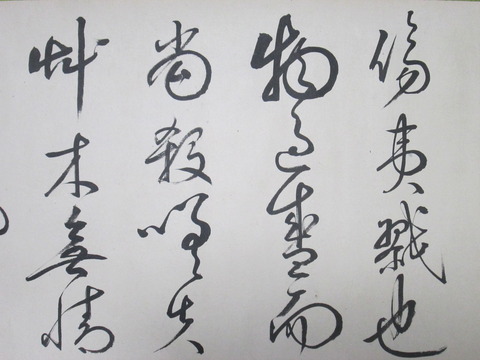 傷夷戮也
物過盛而
當殺嗟夫
艸木無情